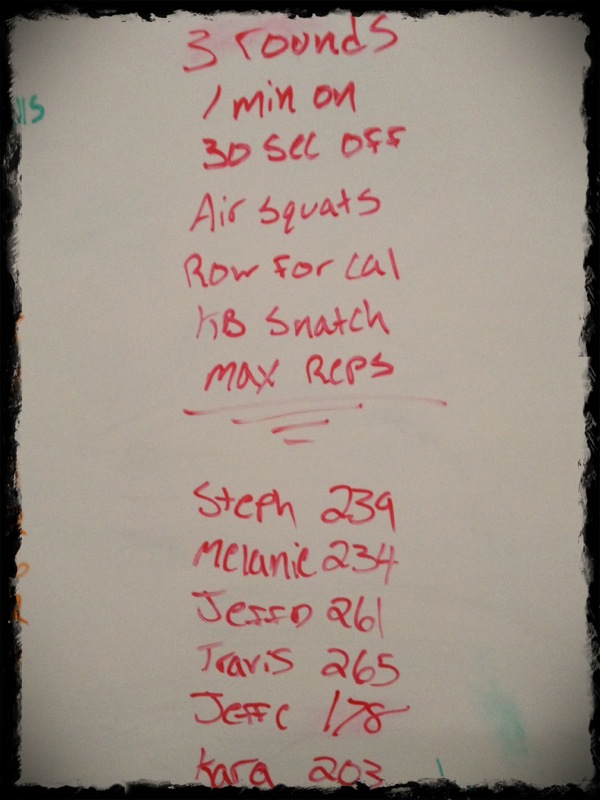 3 rounds
1 min on
30 sec off
Air squats
Row for cal
KB Snatch
Max Reps
Steph 239
Melanie 234
Jeff D 261
Travis 265
Jeff C 178
Kara 203